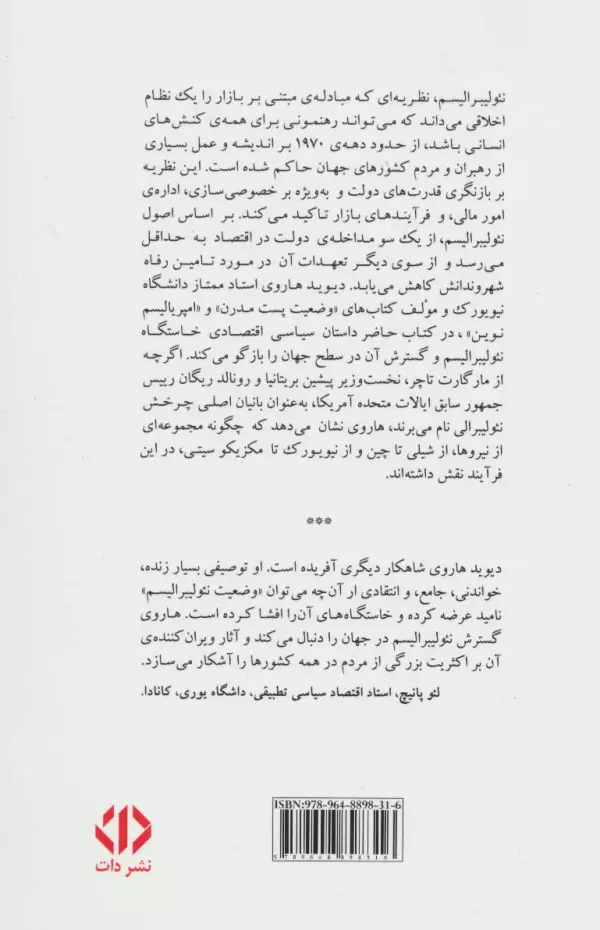 نئولیبرالیسم، نظریه‌ای که مبادله‌ی مبتنی بر بازار را یک نظام
اخلاقی می‌داند که می‌تواند رهنمونی برای همه‌ی کنش‌های
انسانی باشد، از حدود دهه‌ی ۱۹۷۰ بر اندیشه و عمل بسیاری
از رهبران و مردم کشورهای جهان حاکم شده است. این نظریه
بر بازنگری قدرت‌های دولت و به‌ویژه بر خصوصی‌سازی، اداره‌ی
امور مالی، و فرآیندهای بازار تاکید می‌کند. بر اساس اصول
نئولیبرالیسم، از یک سو مداخله‌ی دولت در اقتصاد به حداقل
می‌رسد و از سوی دیگر تعهدات آن در مورد تامین رفاه
شهروندانش کاهش می‌یابد. دیوید هاروی استاد ممتاز دانشگاه
نیویورک و مؤلف کتاب‌های «وضعیت پست مدرن» و «امپریالیسم
نوین»، در کتاب حاضر داستان سیاسی اقتصادی خاستگاه
نئولیبرالیسم و گسترش آن در سطح جهان را بازگو می‌کند. اگرچه
از مارگارت تاچر، نخست‌وزیر پیشین بریتانیا و رونالد ریگان رییس
جمهور سابق ایالات متحده آمریکا، به‌عنوان بانیان اصلی چرخش
نئولیبرالی نام می‌برند، هاروی نشان می‌دهد که چگونه مجموعه‌ای
از نیروها، از شیلی تا چین و از نیویورک تا مکزیکو سیتی، در این
فرآیند نقش داشته‌اند.
***
دیوید هاروی شاهکار دیگری آفریده است. او توصیفی بسیار زنده،
خواندنی، جامع، و انتقادی ار آن‌چه می‌توان «وضعیت نئولیبرالیسم»
نامید عرضه کرده و خاستگاه‌های آن‌را افشا کرده است. هاروی
گسترش نئولیبرالیسم در جهان را دنبال می‌کند و آثار ویران‌کننده‌ی
آن بر اکثریت بزرگی از مردم در همه کشورها را آشکار می‌سازد.
لئو پانیچ، استاد اقتصاد سیاسی تطبیقی، داشگاه یوری، کانادا.
ISBN:978-964-8898-31-6
9789648898316
نشر دات